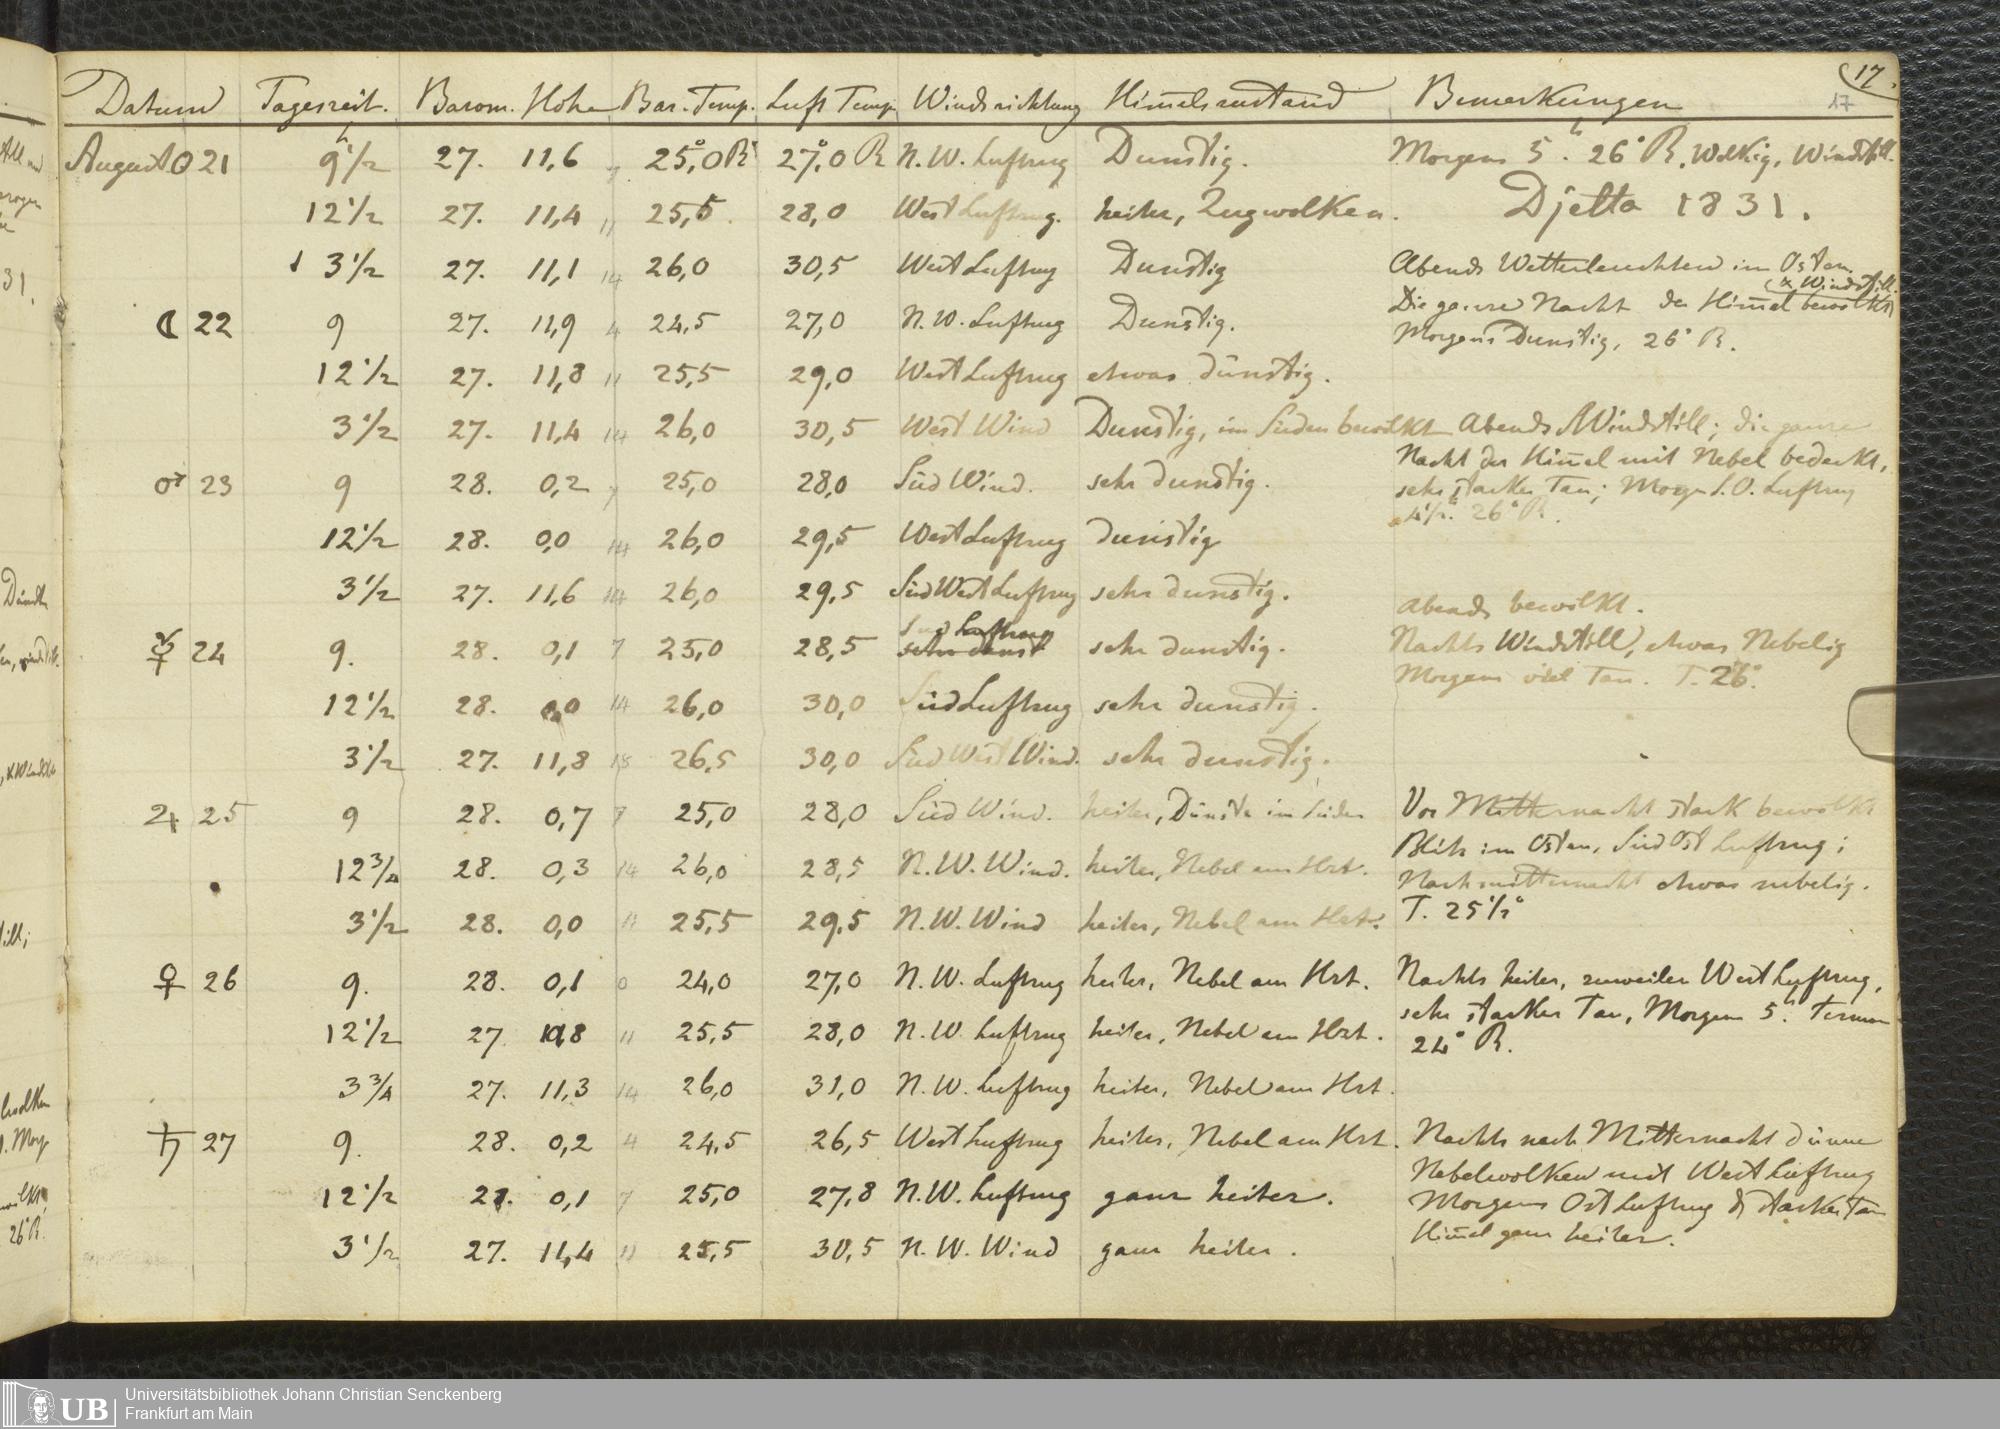 17.
17
Datum Tageszeit. Barom. Höhe Bar. Temp. Luft Temp. Windsrichtung Him̄elszustand Bemerkungen
August ☉ 21 9h 1/2 27. 11,6 7 25,°0 R 27,°0 R N. W. Luftzug Dunstig. Morgens 5h. 26° R. Wolkig, Windstill.
12 1/2 27. 11,4 11 25,5 28,0 West Luftzug. heiter, Zugwolken. Djetta 1831.
3 1/2 27. 11,1 14 26,0 30,5 West Luftzug Dunstig Abends Wetterleuchten im Osten
& Windstill.
☾ 22 9 27. 11,9 4 24,5 27,0 N. W. Luftzug Dunstig. Die ganze Nacht der Him̄el bewölkt
Morgens Dunstig, 26° R.
12 1/2 27. 11,8 11 25,5 29,0 West Luftzug etwas dünstig.
3 1/2 27. 11,4 14 26,0 30,5 West Wind Dunstig, im Süden bewölkt Abends Windstill; die ganze
Nacht der Him̄el mit Nebel bedeckt,
♂ 23 9 28. 0,2 7 25,0 28,0 Süd Wind. sehr dunstig. sehr starker Tau; Morgen S. O. Luftzug
4 1/2. 26° R.
12 1/2 28. 0,0 14 26,0 29,5 West Luftzug dunstig
3 1/2 27. 11,6 14 26,0 29,5 Süd West Luftzug sehr dunstig. Abends bewölkt.
Süd Luftzug
☿ 24 9. 28. 0,1 7 25,0 28,5 sehr dunst sehr dunstig. Nachts Windstill, etwas Nebelig
Morgens viel Tau. T. 26°.
12 1/2 28. 0,0 14 26,0 30,0 Süd Luftzug sehr dunstig.
3 1/2 27. 11,8 18 26,5 30,0 Süd West Wind. sehr dunstig.
♃ 25 9 28. 0,7 7 25,0 28,0 Süd Wind. heiter, Dünste im Süden Vor Mitternacht stark bewölkt
Blitz im Osten, Süd Ost Luftzug;
12 3/4 28. 0,3 14 26,0 28,5 N. W. Wind. heiter, Nebel am Hrt. Nachmitternacht etwas nebelig.
3 1/2 28. 0,0 11 25,5 29,5 N. W. Wind heiter, Nebel am Hrt. T. 25 1/2°
♀ 26 9. 28. 0,1 0 24,0 27,0 N. W. Luftzug heiter, Nebel am Hrt. Nachts heiter, zuweilen West Luftzug,
sehr starker Tau, Morgens 5h. Termom
12 1/2 27 8 11 25,5 28,0 N. W. Luftzug heiter, Nebel am Hrt. 24° R.
3 3/4 27. 11,3 14 26,0 31,0 N. W. Luftzug heiter, Nebel am Hrt.
♄ 27 9. 28. 0,2 4 24,5 26,5 West Luftzug heiter, Nebel am Hrt. Nachts nach Mitternacht dünne
Nebelwolken mit West Luftzug
12 1/2 27. 0,1 7 25,0 27,8 N. W. Luftzug ganz heiter. Morgens Ost Luftzug & starker Tau
3 1/2 27. 11,4 11 25,5 30,5 N. W. Wind ganz heiter. Him̄el ganz heiter.
UB Universitätsbibliothek Johann Christian Senckenberg
Frankfurt am Main